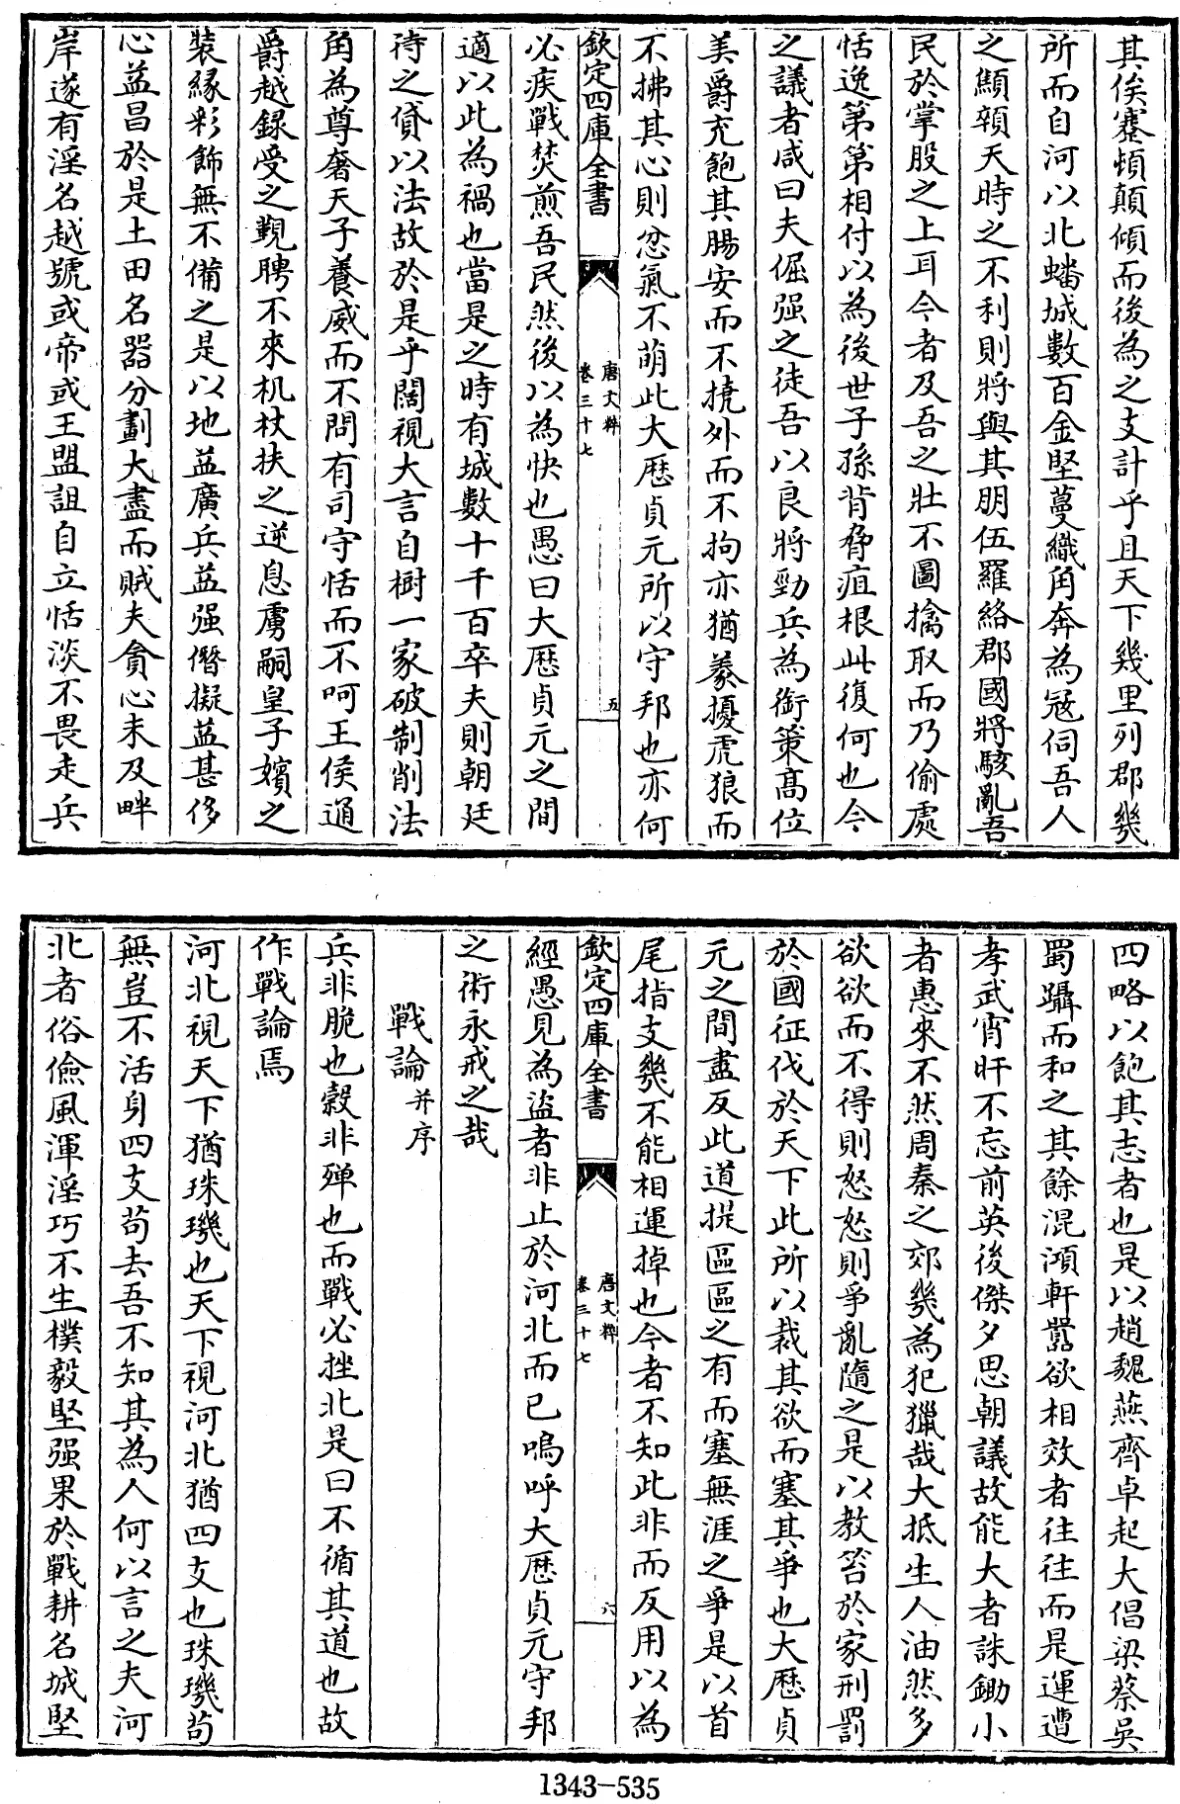 其俟蹇頓顛傾而後為之支計乎且天下幾里列郡幾
所而自河以北蟠城數百金堅蔓織角奔為寇伺吾人
之顯頞天時之不利則將與其朋伍羅絡郡國將駭亂吾
民於掌股之上耳今者及吾之壯不圖擒取而乃偷處
恬逸第第相付以為後世子孫背脅疽根此復何也今
之議者咸曰夫倔强之徒吾以良將勁兵為銜策髙位
美爵充飽其腸安而不撓外而不拘亦猶豢擾虎狼而
不拂其心則忿氣不萌此大厯貞元所以守邦也亦何
欽定四庫全書
唐文粹
卷三十七
五
必疾戰焚煎吾民然後以為快也愚曰大厯貞元之間
適以此為禍也當是之時有城數十千百卒夫則朝廷
待之貸以法故於是乎闊視大言自樹一家破制削法
角為尊奢天子養威而不問有司守恬而不呵王侯通
爵越錄受之覲聘不來机杖扶之逆息虜嗣皇子嬪之
裝緣彩飾無不備之是以地益廣兵益强僭擬益甚侈
心益昌於是土田名器分劃大盡而賊夫貪心未及畔
岸遂有淫名越號或帝或王盟詛自立恬淡不畏走兵
四略以飽其志者也是以趙魏燕齊卓起大倡梁蔡吳
蜀躡而和之其餘混澒軒囂欲相效者往往而是運遭
孝武宵旰不忘前英後傑夕思朝議故能大者誅鋤小
者惠來不然周秦之郊幾為犯獵哉大抵生人油然多
欲欲而不得則怒怒則爭亂隨之是以教笞於家刑罰
於國征伐於天下此所以裁其欲而塞其爭也大厯貞
元之間盡反此道提區區之有而塞無涯之爭是以首
尾指支幾不能相運掉也今者不知此非而反用以為
欽定四庫全書
唐文粹
卷三十七
六
經愚見為盜者非止於河北而已嗚呼大厯貞元守邦
之術永戒之哉
戰論并序
兵非脆也穀非殫也而戰必挫北是曰不循其道也故
作戰論焉
河北視天下猶珠璣也天下視河北猶四支也珠璣茍
無豈不活身四支茍去吾不知其為人何以言之夫河
北者俗儉風渾淫巧不生樸毅堅强果於戰耕名城堅
1343-535